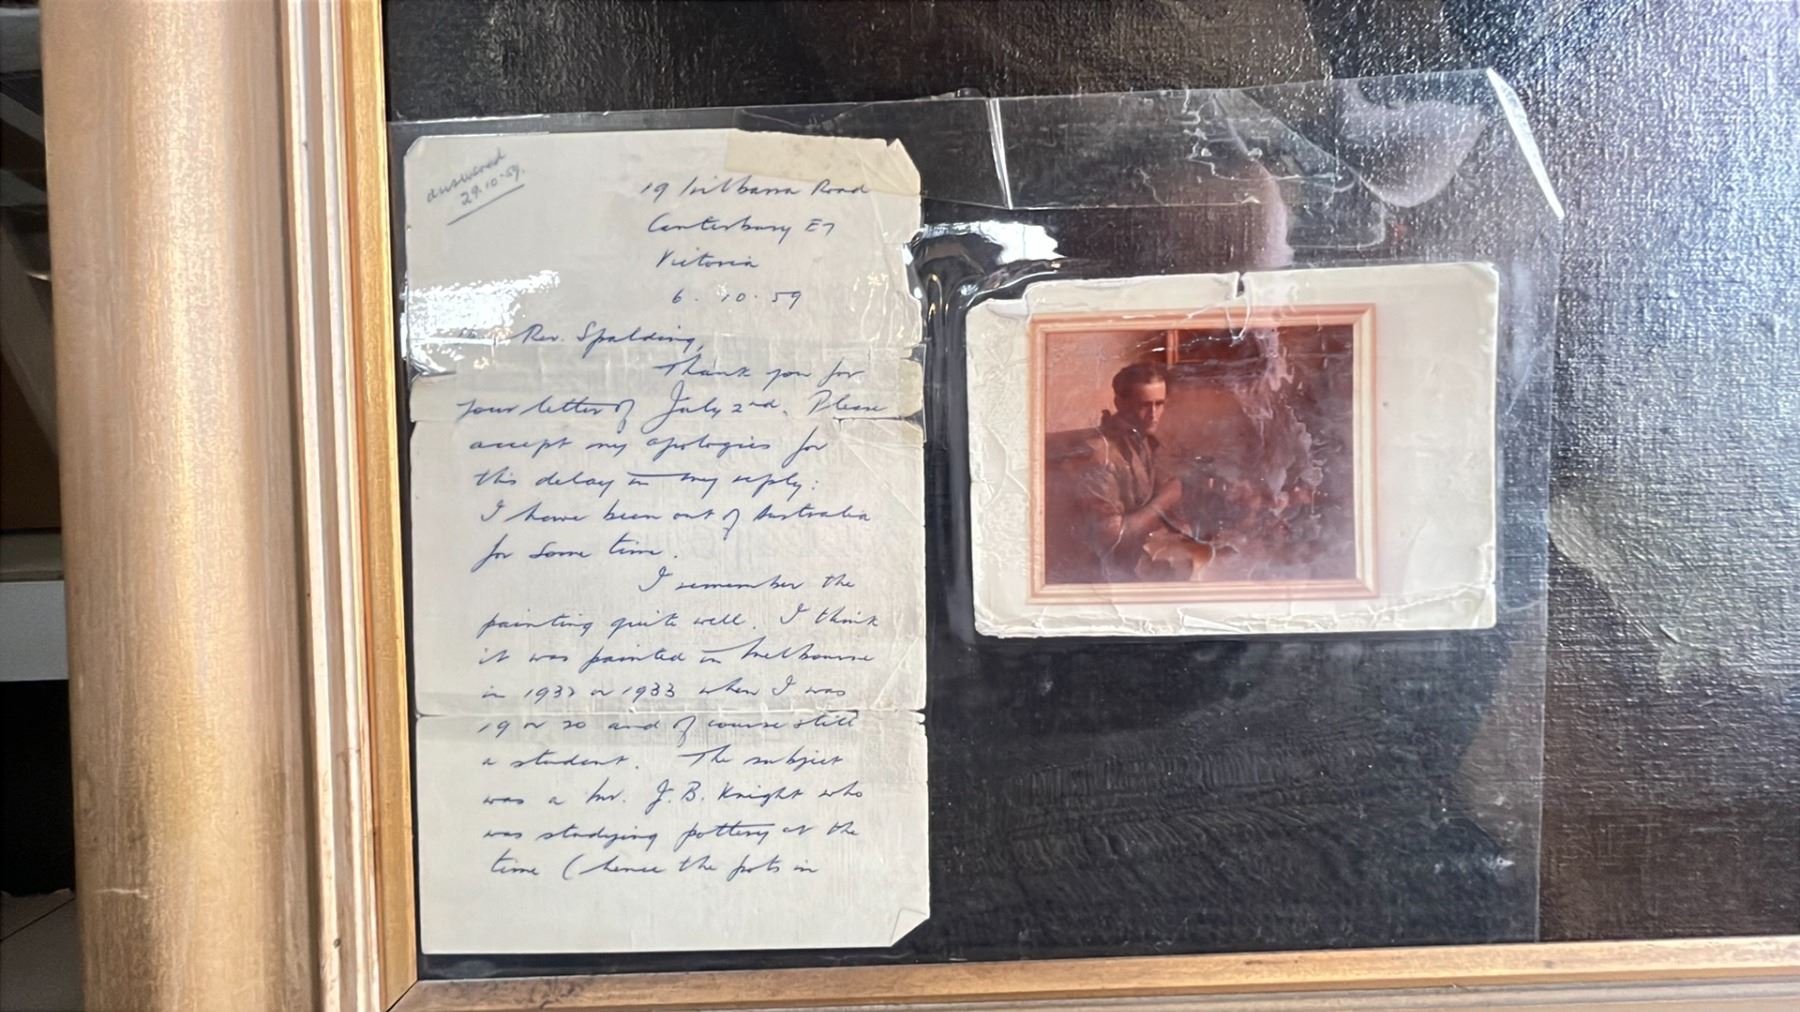 answered
29.10.59.
19 Road
Canterbury E7
Victoria
6. 10. 59
Rev. Spalding,
Thank you for
your letter of July 2nd. Please
accept my apologies for
this delay in my reply:
I have been out of Australia
for some time.
I remember the
painting quite well. I think
it was painted in Melbourne
in 1932 or 1933 when I was
19 or 20 and of course still
a student. The subject
was a Mr. J.B. Knight who
was studying pottery at the
time (hence the pots in